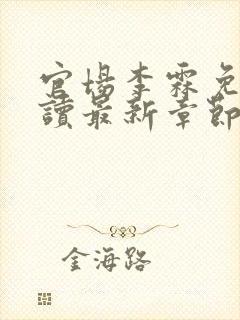 官場李霖免
讀最新章節
金海路